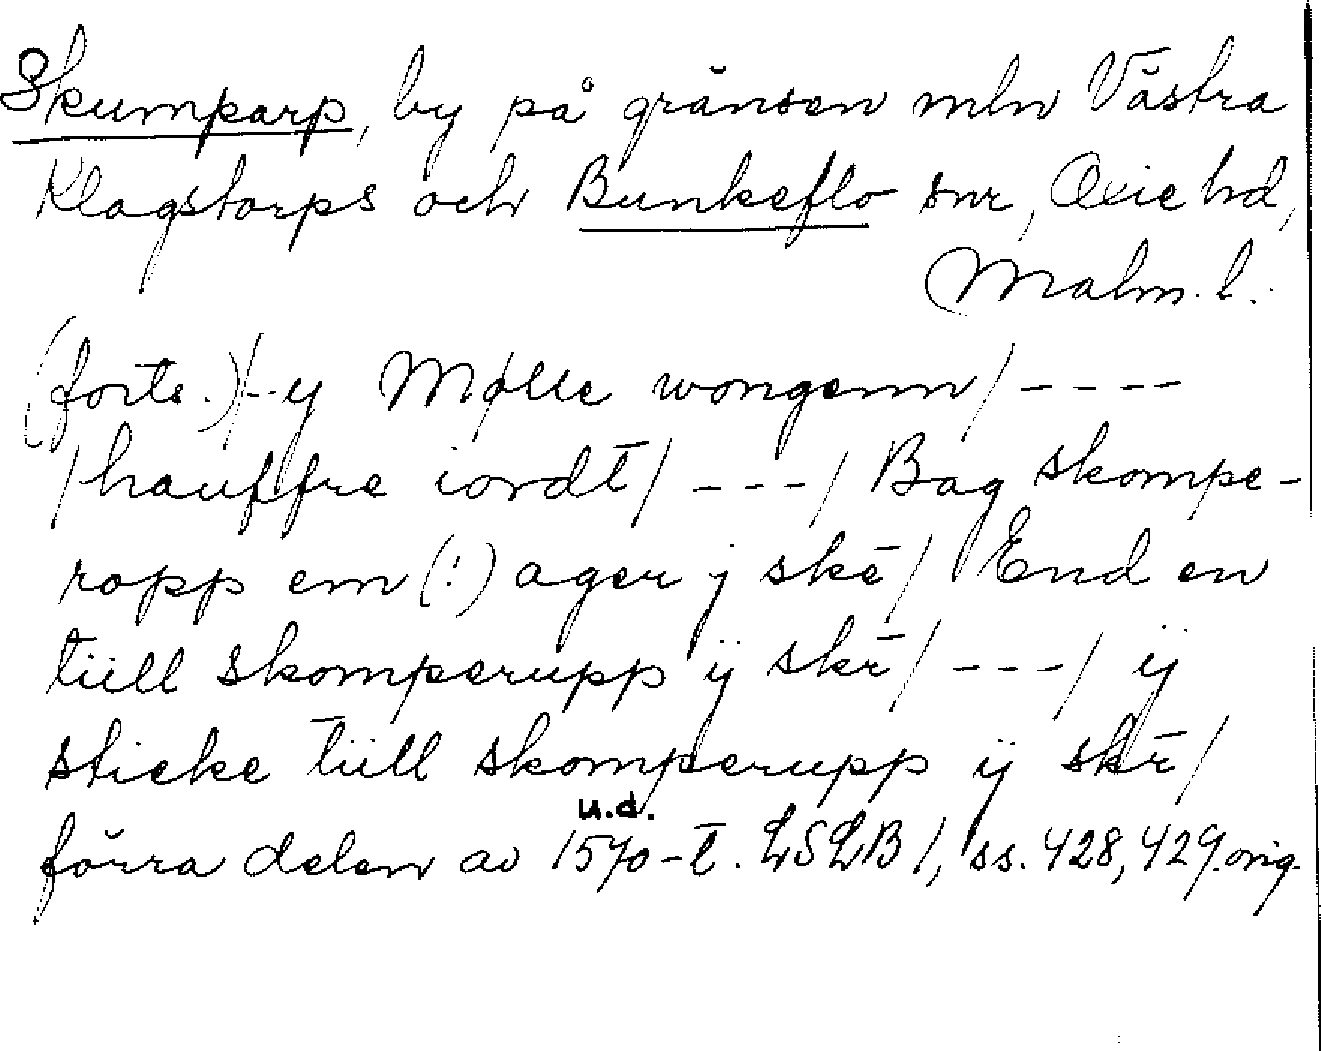 Skumparp, by på gränsen mln Västra
Klagstorps och Bunkeflo snr, Oxie hd,
Malm. l.
(forts.)/--y Mølle wongenn/----
/hauffre iordt/---/Bag skompe-
ropp em(!) ager j skē/ End en
tiill skomperupp ÿ skr̄/---/ ÿ
sticke tiill skomperupp ÿ skr̄/
u.d.
förra delen av 1570-t. LSLB 1, ss. 428, 429. orig.